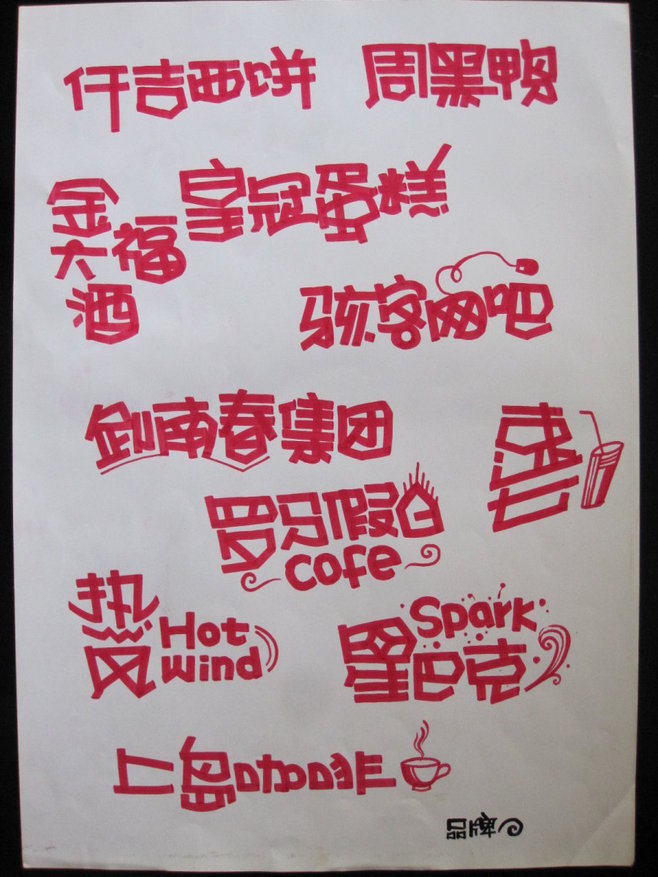 仟吉西饼 周黑鸭
皇冠蛋糕
金
大福
酒
骇客网吧
剑南春集团
罗马假日
cofe
热风
Hot
wind
Spark
星巴克
上岛咖啡
品牌